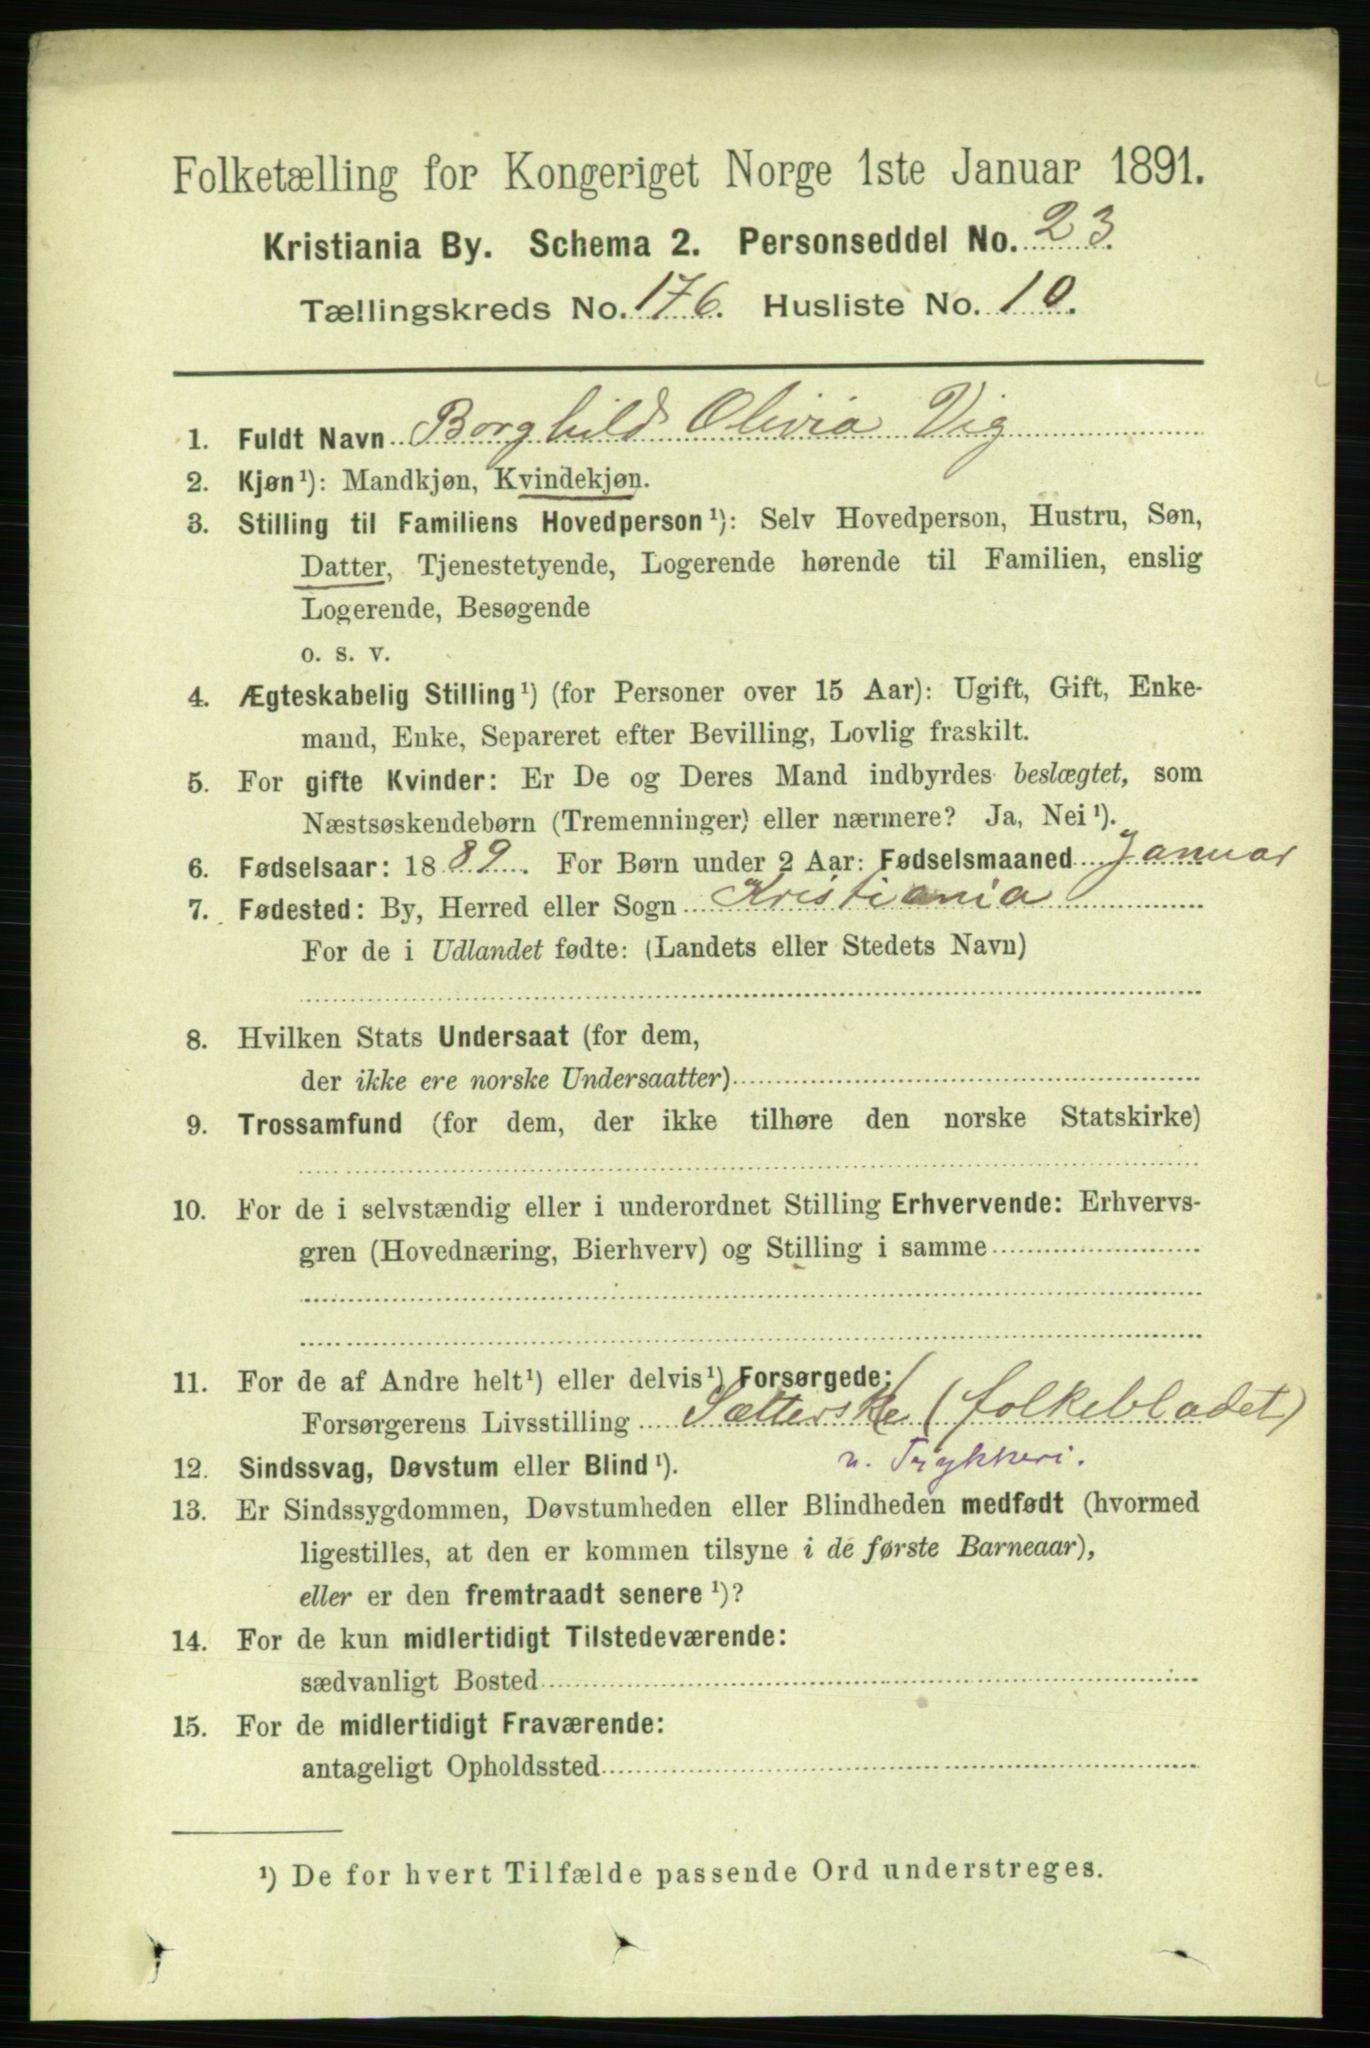 Folketælling for Kongeriget Norge 1ste Januar 1891.
Kristiania By. Schema 2. Personseddel No. 23.
Tællingskreds No. 176. Husliste No. 10.
1. Fuldt Navn Borghild Olivia Vig
2. Kjøn¹): Mandkjøn, Kvindekjøn.
3. Stilling til Familiens Hovedperson¹): Selv Hovedperson, Hustru, Søn,
Datter, Tjenestetyende, Logerende hørende til Familien, enslig
Logerende, Besøgende
o. s. v.
4. Ægteskabelig Stilling¹) (for Personer over 15 Aar): Ugift, Gift, Enke-
mand, Enke, Separeret efter Bevilling, Lovlig fraskilt.
5. For gifte Kvinder: Er De og Deres Mand indbyrdes beslægtet, som
Næstsøskendebørn (Tremenninger) eller nærmere? Ja, Nei¹).
6. Fødselsaar: 1889. For Børn under 2 Aar: Fødselsmaaned Januar
7. Fødested: By, Herred eller Sogn Kristiania
For de i Udlandet fødte: (Landets eller Stedets Navn)
8. Hvilken Stats Undersaat (for dem,
der ikke ere norske Undersaatter)
9. Trossamfund (for dem, der ikke tilhøre den norske Statskirke)
10. For de i selvstændig eller i underordnet Stilling Erhvervende: Erhvervs-
gren (Hovednæring, Bierhverv) og Stilling i samme
11. For de af Andre helt¹) eller delvis¹) Forsørgede:
Forsørgerens Livsstilling Sætterske (folkebladet)
v. Trykkeri.
12. Sindssvag, Døvstum eller Blind¹).
13. Er Sindssygdommen, Døvstumheden eller Blindheden medfødt (hvormed
ligestilles, at den er kommen tilsyne i de første Barneaar),
eller er den fremtraadt senere¹)?
14. For de kun midlertidigt Tilstedeværende:
sædvanligt Bosted
15. For de midlertidigt Fraværende:
antageligt Opholdssted
¹) De for hvert Tilfælde passende Ord understreges.